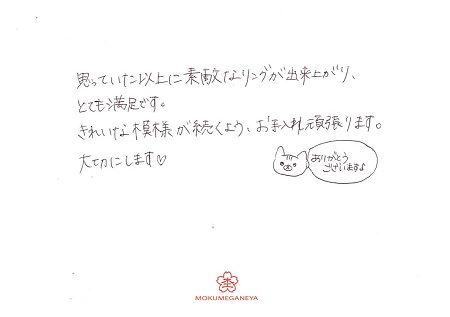 思っていた以上に素敵なリングが出来上がり、
とても満足です。
きれいな模様が続くよう、お手入れ頑張ります。
大切にします♡
ありがとう
ございます♪
杢
MOKUMEGANEYA